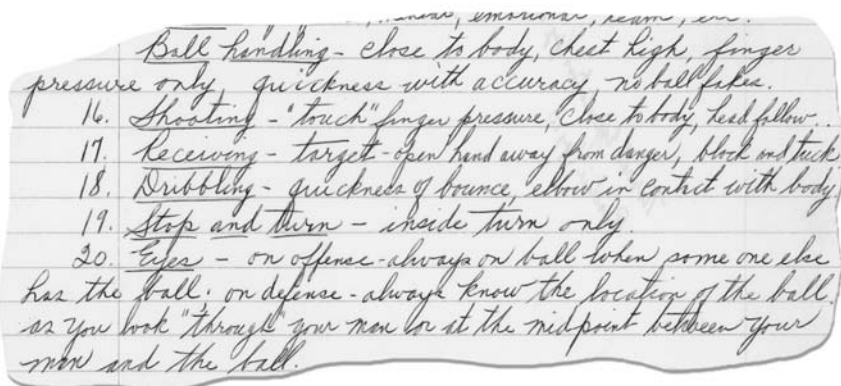 mental, emotional, team, etc.
Ball handling - close to body, chest high, finger
pressure only, quickness with accuracy, no ball fakes.
16. Shooting - "touch" finger pressure, close to body, head follow..
17. Receiving - target - open hand away from danger, block and tuck
18. Dribbling - quickness of bounce, elbow in contact with body,
19. Stop and turn - inside turn only.
20. Eyes - on offense - always on ball when some one else
has the ball; on defense - always know the location of the ball
as you look "through" your man or at the midpoint between your
man and the ball.